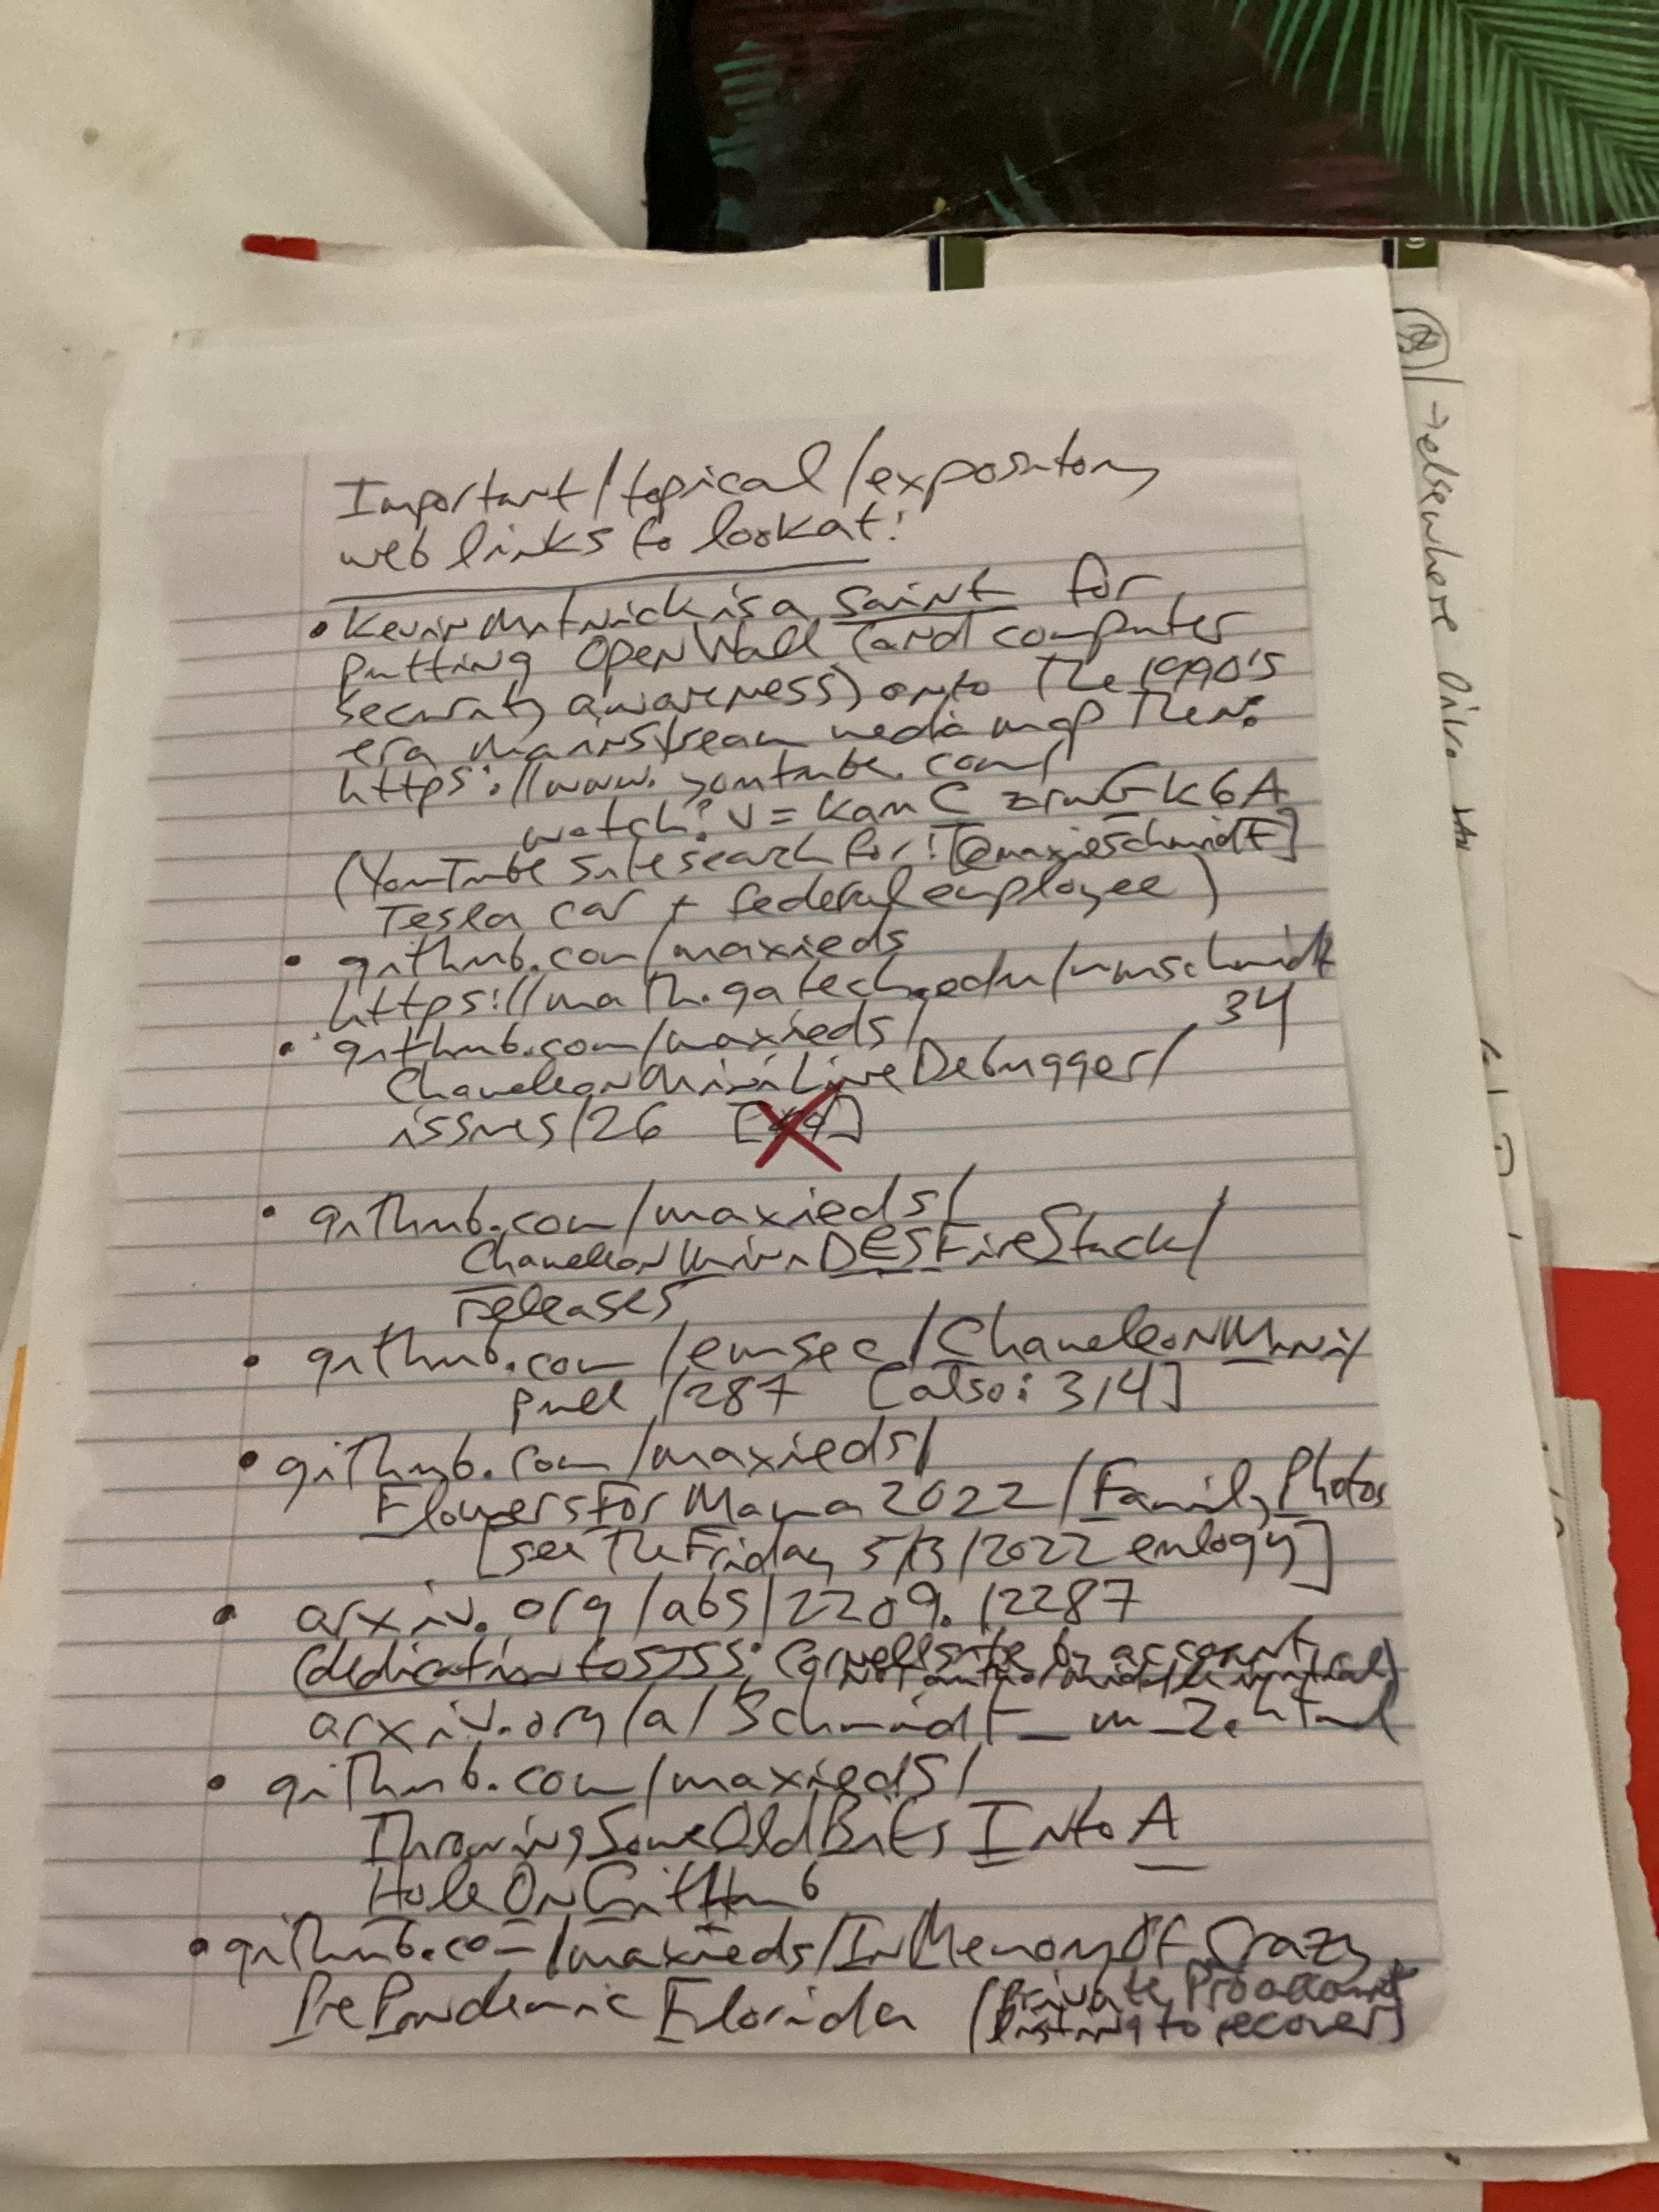 Important/topical/expository
web links to look at:
• Kevin Mitnick is a saint for
putting OpenWall (and computer
security awareness) onto the 1990's
era mainstream media map then:
https://www.youtube.com/
watch?v=
(YouTube site search for: [@maxieschmidt]
Tesla car + federal employee)
• github.com/maxieds
https://math.gatech.edu/
34
• github.com/maxieds/
ChameleonMiniLiveDebugger/
issues/26
• github.com/maxieds/
ChameleonMiniDESFireStack/
releases
• github.com/emsec/ChameleonMini/
pull/287 [also: 314]
• github.com/maxieds/
FlowersForMama2022/FamilyPhotos
[see the Friday 5/13/2022 eulogy]
• arxiv.org/abs/2209.12287
(dedication to SJSS: Cornell site by accent,
not
arxiv.org/a/Schmidt_m_2.html
• github.com/maxieds/
ThrowingSomeOldBitsIntoA
HoleOnGitHub
• github.com/maxieds/InMemoryOfCrazy
PrePandemicFlorida (Private Pro account
listing to recover)
→ elsewhere